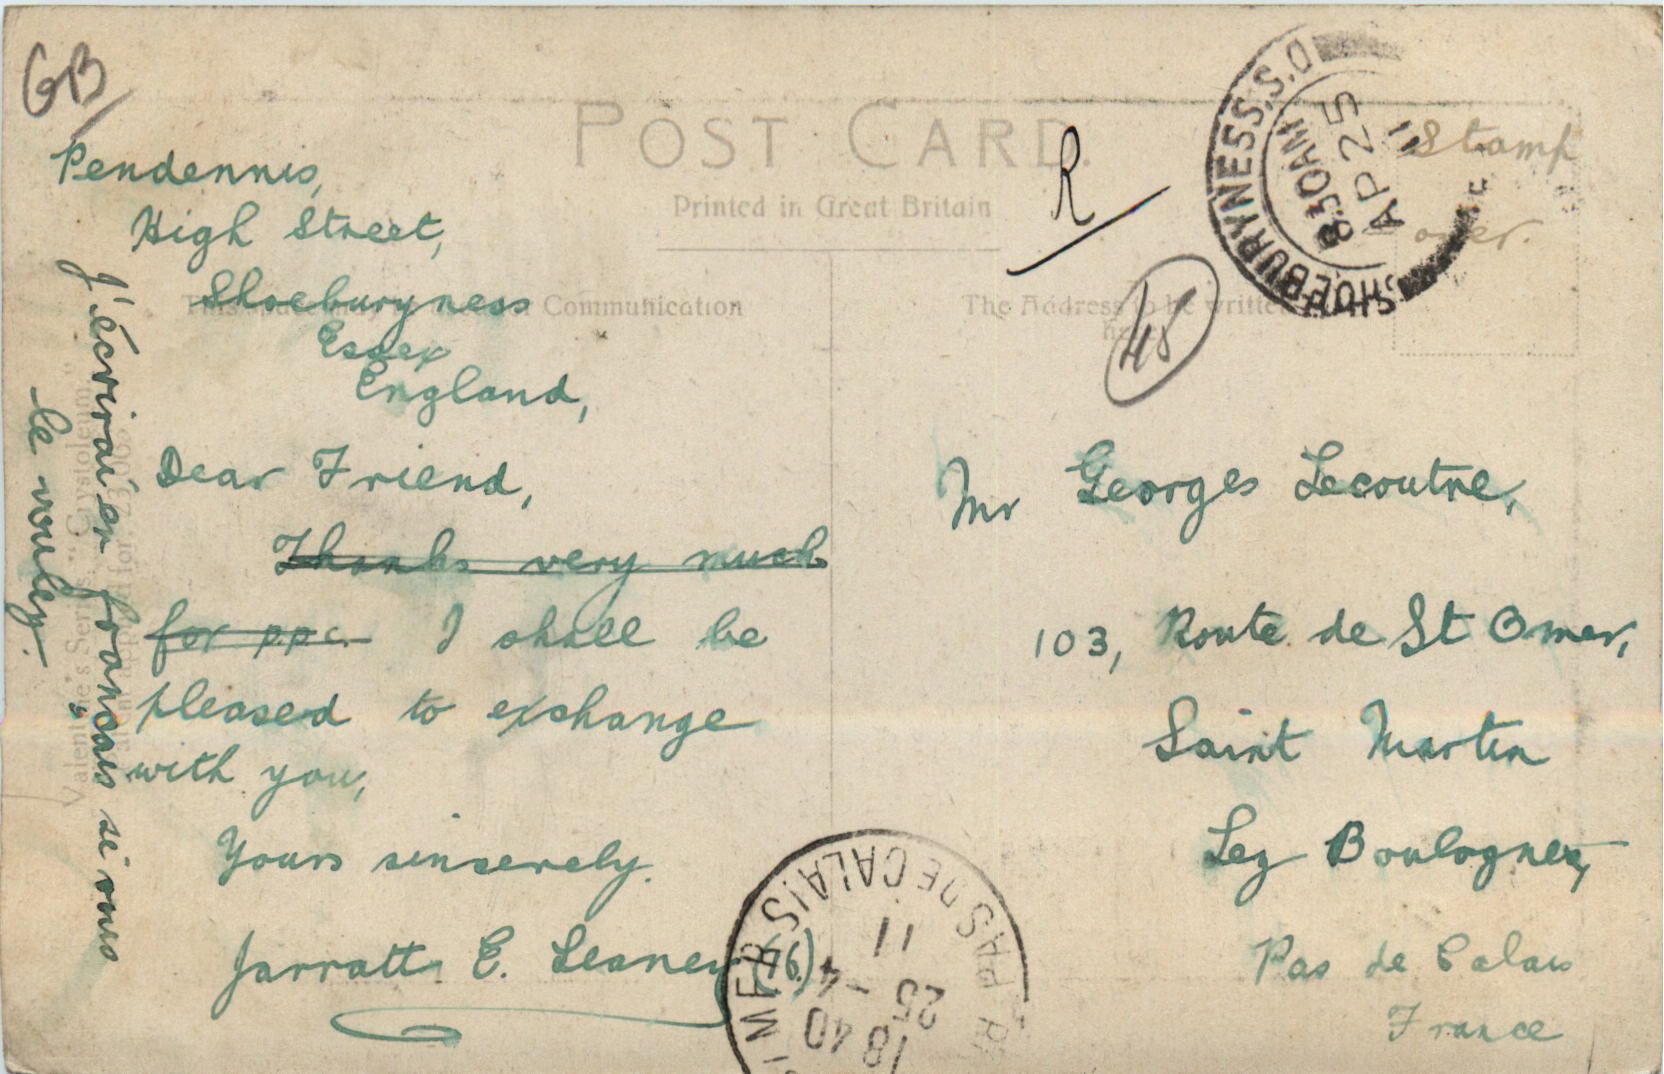 GB
POST CARD.
Printed in Great Britain
R
SHOEBURYNESS.S.O
8.30AM
AP 25
11
Stamp
over.
45
Communication
The Address to be written
Pendennis,
High Street,
Shoeburyness
Essex
England,
Dear Friend,
Thanks very much
for ppc. I shall be
pleased to exchange
with you,
Yours sinserely.
Jarratt E. Leaney (19)
J'écrirai en français si vous
le voulez.
Valentine's Series
Mr Georges Lecoutre,
103, Route de St Omer,
Saint Martin
Lez Boulogne,
Pas de Calais
France
PAS DE CALAIS
18 40
25 - 4
11